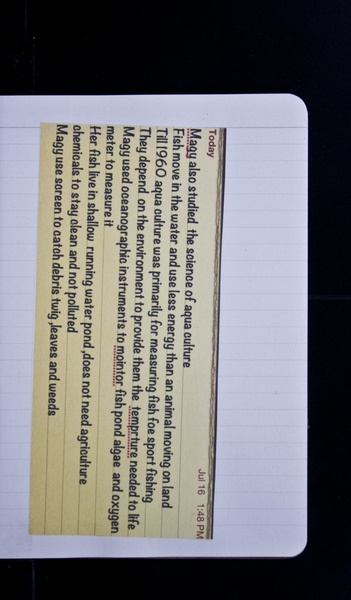 Today Jul 16 1:48 PM
Magy also studied the science of aqua culture
Fish move in the water and use less energy than an animal moving on land
Till 1960 aqua culture was primarily for measuring fish foe sport fishing
They depend on the environment to provide them the temprture needed to life
Magy used oceanographic instruments to mointor fish pond algae and oxygen
meter to measure it
Her fish live in shallow running water pond ,does not need agriculture
chemicals to stay clean and not polluted
Magy use screen to catch debris twig ,leaves and weeds